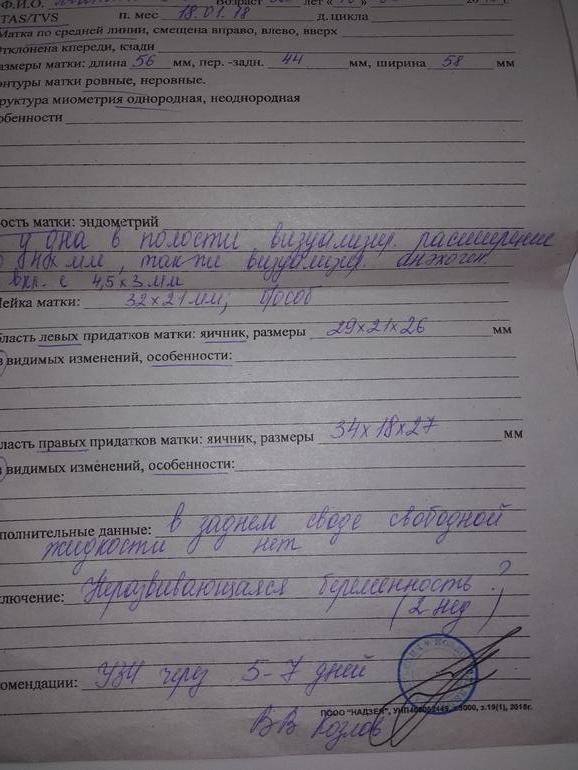 Ф.И.О. Возраст лет «
TAS/TVS п. мес 18.01.18 д.цикла
Матка по средней линии, смещена вправо, влево, вверх
Отклонена кпереди, кзади
азмеры матки: длина 56 мм, пер. -задн. 44 мм, ширина 58 мм
онтуры матки ровные, неровные.
руктура миометрия однородная, неоднородная
обенности
ость матки: эндометрий
у дна в полости визуализир. расширение
мм, визуализир. анэхоген.
вкл. с 4,5х3 мм
Шейка матки: 32х21мм;
бласть левых придатков матки: яичник, размеры 29х21х26 мм
з видимых изменений, особенности:
ласть правых придатков матки: яичник, размеры 34х18х27 мм
з видимых изменений, особенности:
полнительные данные: в заднем своде свободной
жидкости нет
ключение: Неразвивающаяся беременность?
(2 нед)
омендации: УЗИ через 5-7 дней
ПООО "НАДЗЕЯ", з.19(1), 2018г.
ВВ Козлов